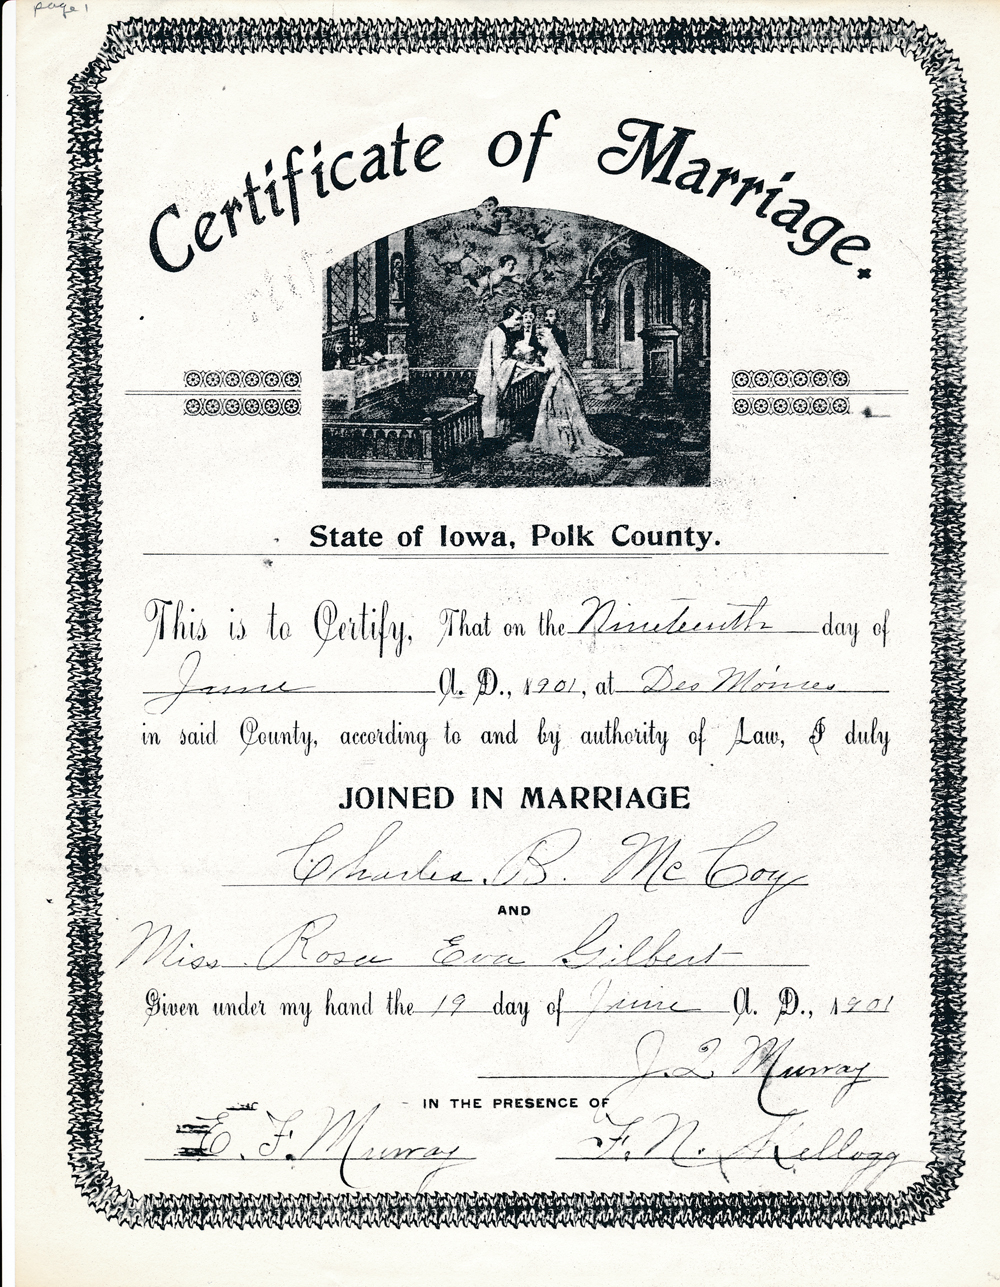 page 1
Certificate of Marriage.
State of Iowa, Polk County.
This is to Certify, That on the Nineteenth day of
June A. D., 1901, at Des Moines
in said County, according to and by authority of Law, I duly
JOINED IN MARRIAGE
Charles. B. McCoy
AND
Miss. Rosa Eva Gilbert
Given under my hand the 19 day of June A. D., 1901
J. Q Murray
IN THE PRESENCE OF
E. F. Murray F. N. Kellogg